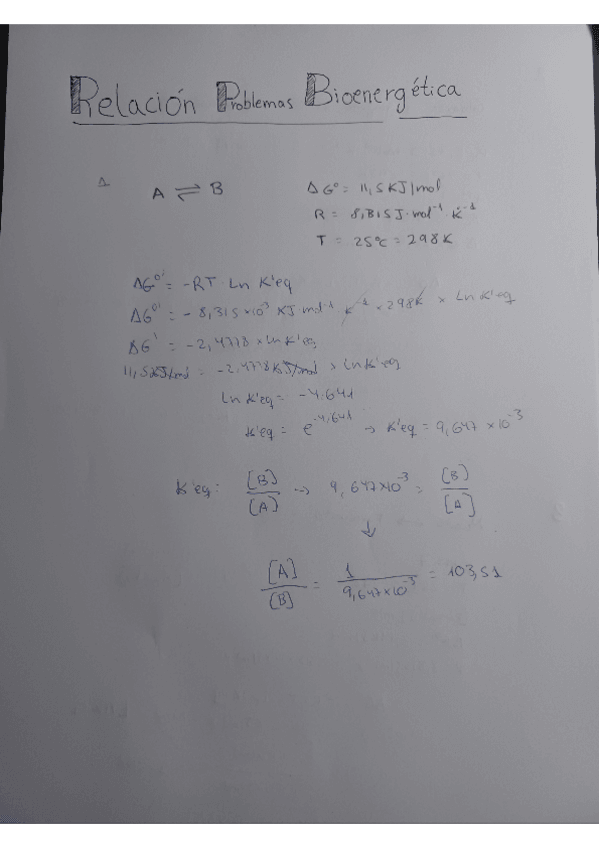 Relación Problemas Bioenergética
1
A ⇌ B
ΔG°' = 11,5 KJ/mol
R = 8,315 J·mol⁻¹ K⁻¹
T = 25°C = 298K
ΔG°' = -RT · Ln K'eq
ΔG°' = - 8,315×10⁻³ KJ·mol⁻¹ · K⁻¹ × 298K × Ln K'eq
ΔG' = -2,4778 × Ln K'eq
11,5 KJ/mol = -2,4778 KJ/mol × Ln K'eq
Ln K'eq = -4.641
K'eq = e^-4,641 → K'eq = 9,647 ×10⁻³
K'eq: [B]/[A] → 9,647×10⁻³ = [B]/[A]
↓
[A]/[B] = 1/9,647×10⁻³ = 103,51